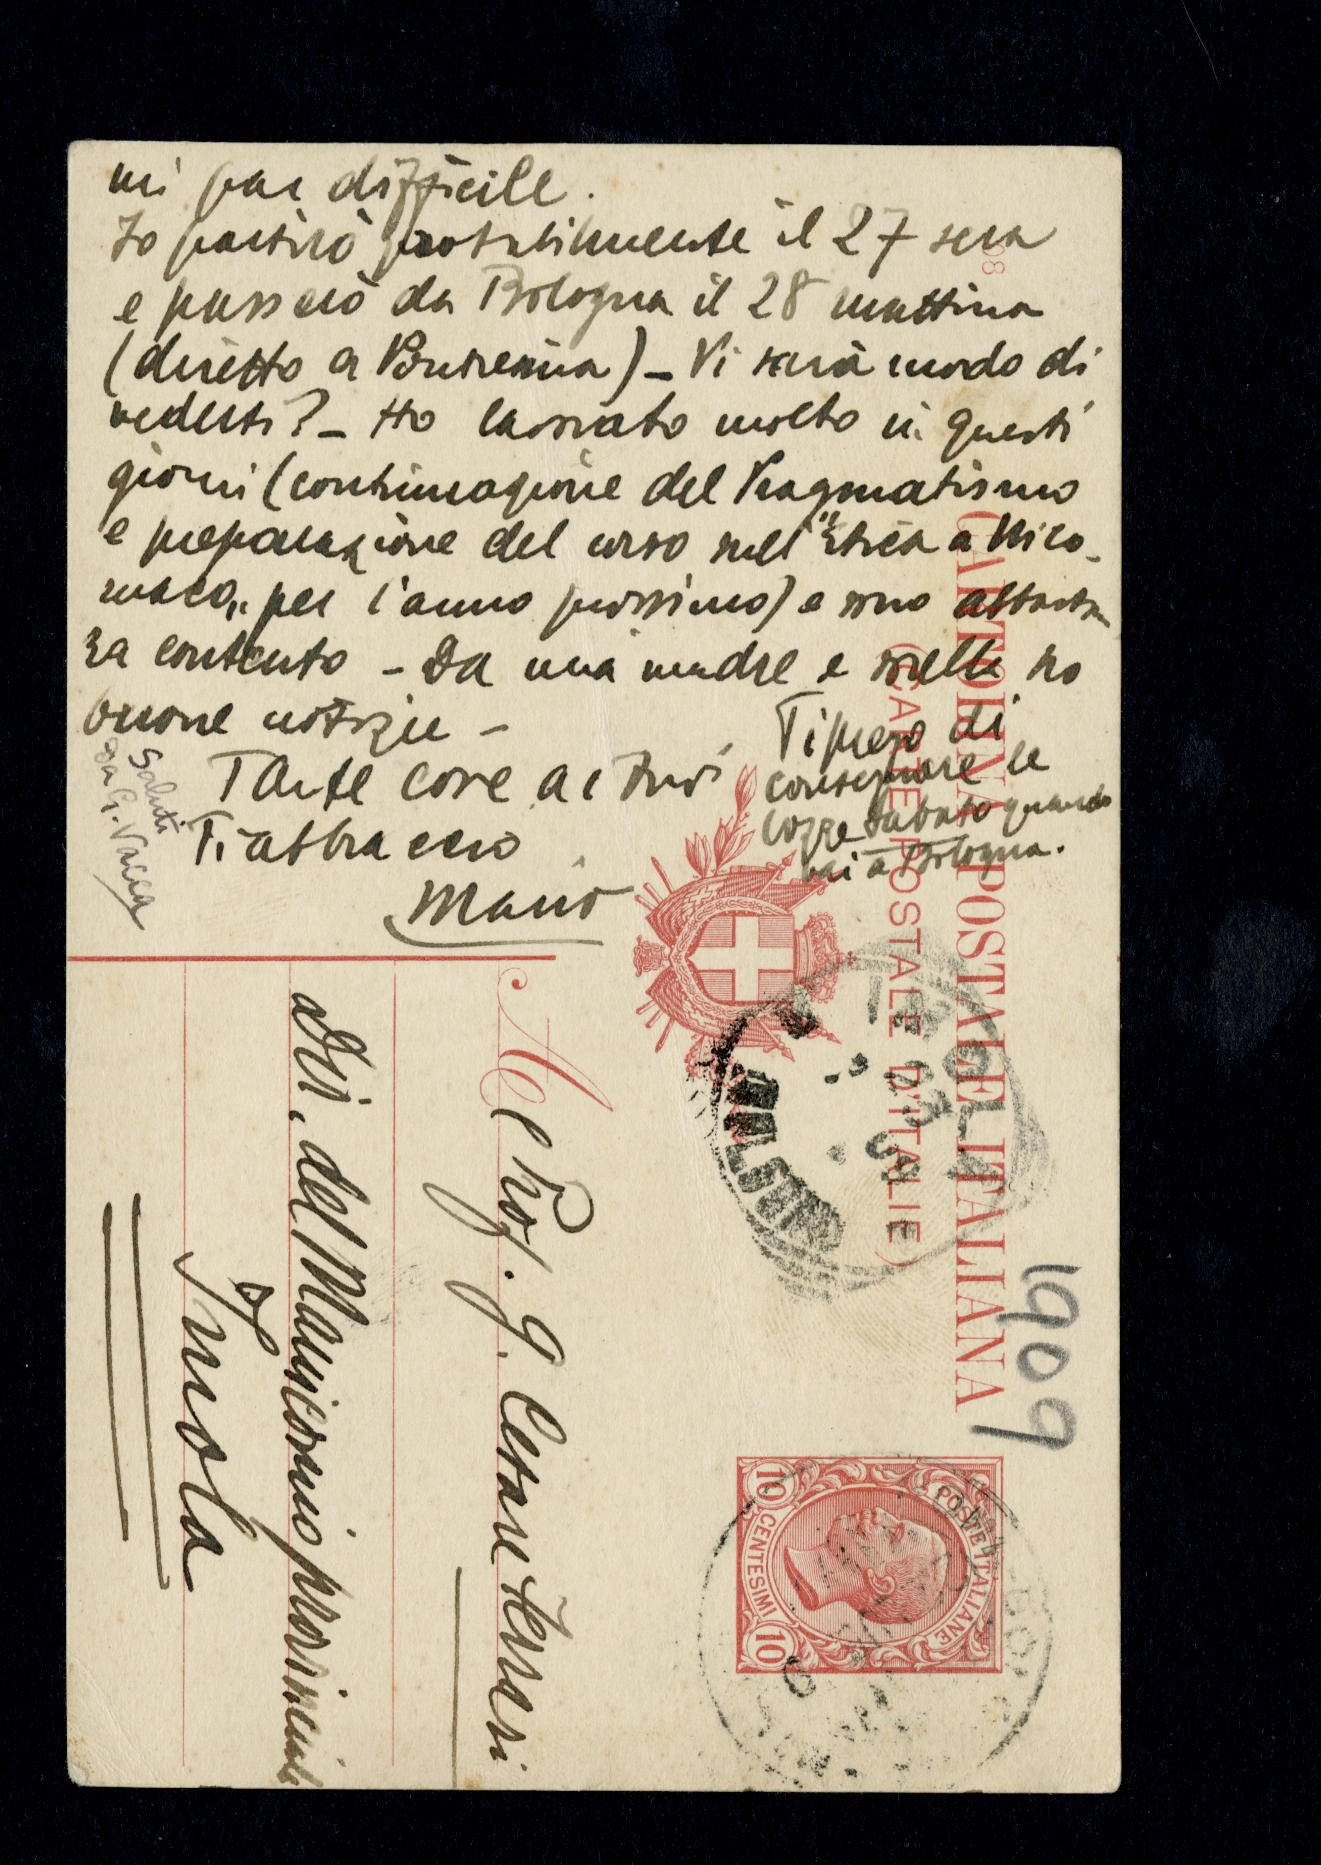 mi par difficile.
Io partirò probabilmente il 27 sera
e passerò da Bologna il 28 mattina
(diretto a Pontresina) – Vi sarà modo di
vederti? – Ho lavorato molto in questi
giorni (continuazione del Pragmatismo
e preparazione del corso sull'"Etica a Nico-
maco" per l'anno prossimo) e sono abbastan
za contento – Da mia madre e sorelle ho
buone notizie –
Tante cose ai tuoi
Ti abbraccio
Mario
Ti prego di
consegnare le
bozze sabato quando
vai a Bologna.
Saluti
da G. Vacca
CARTOLINA POSTALE ITALIANA
(CARTE POSTALE D'ITALIE)
08
1909
POSTE ITALIANE
10 CENTESIMI 10
Al Prof. G. Cesare Ferrari
Dir. del Manicomio provinciale
di
Imola